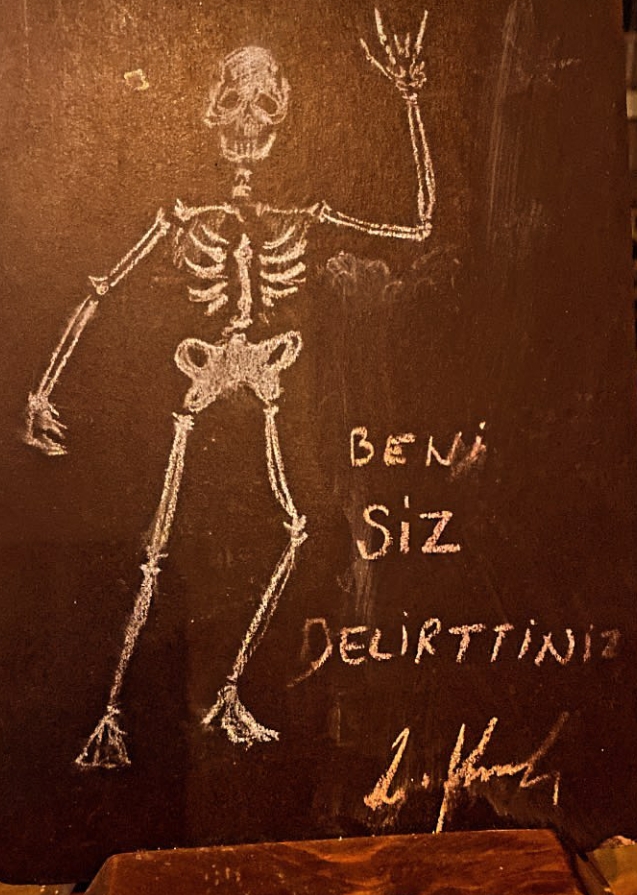 BENİ
SİZ
DELİRTTİNİZ